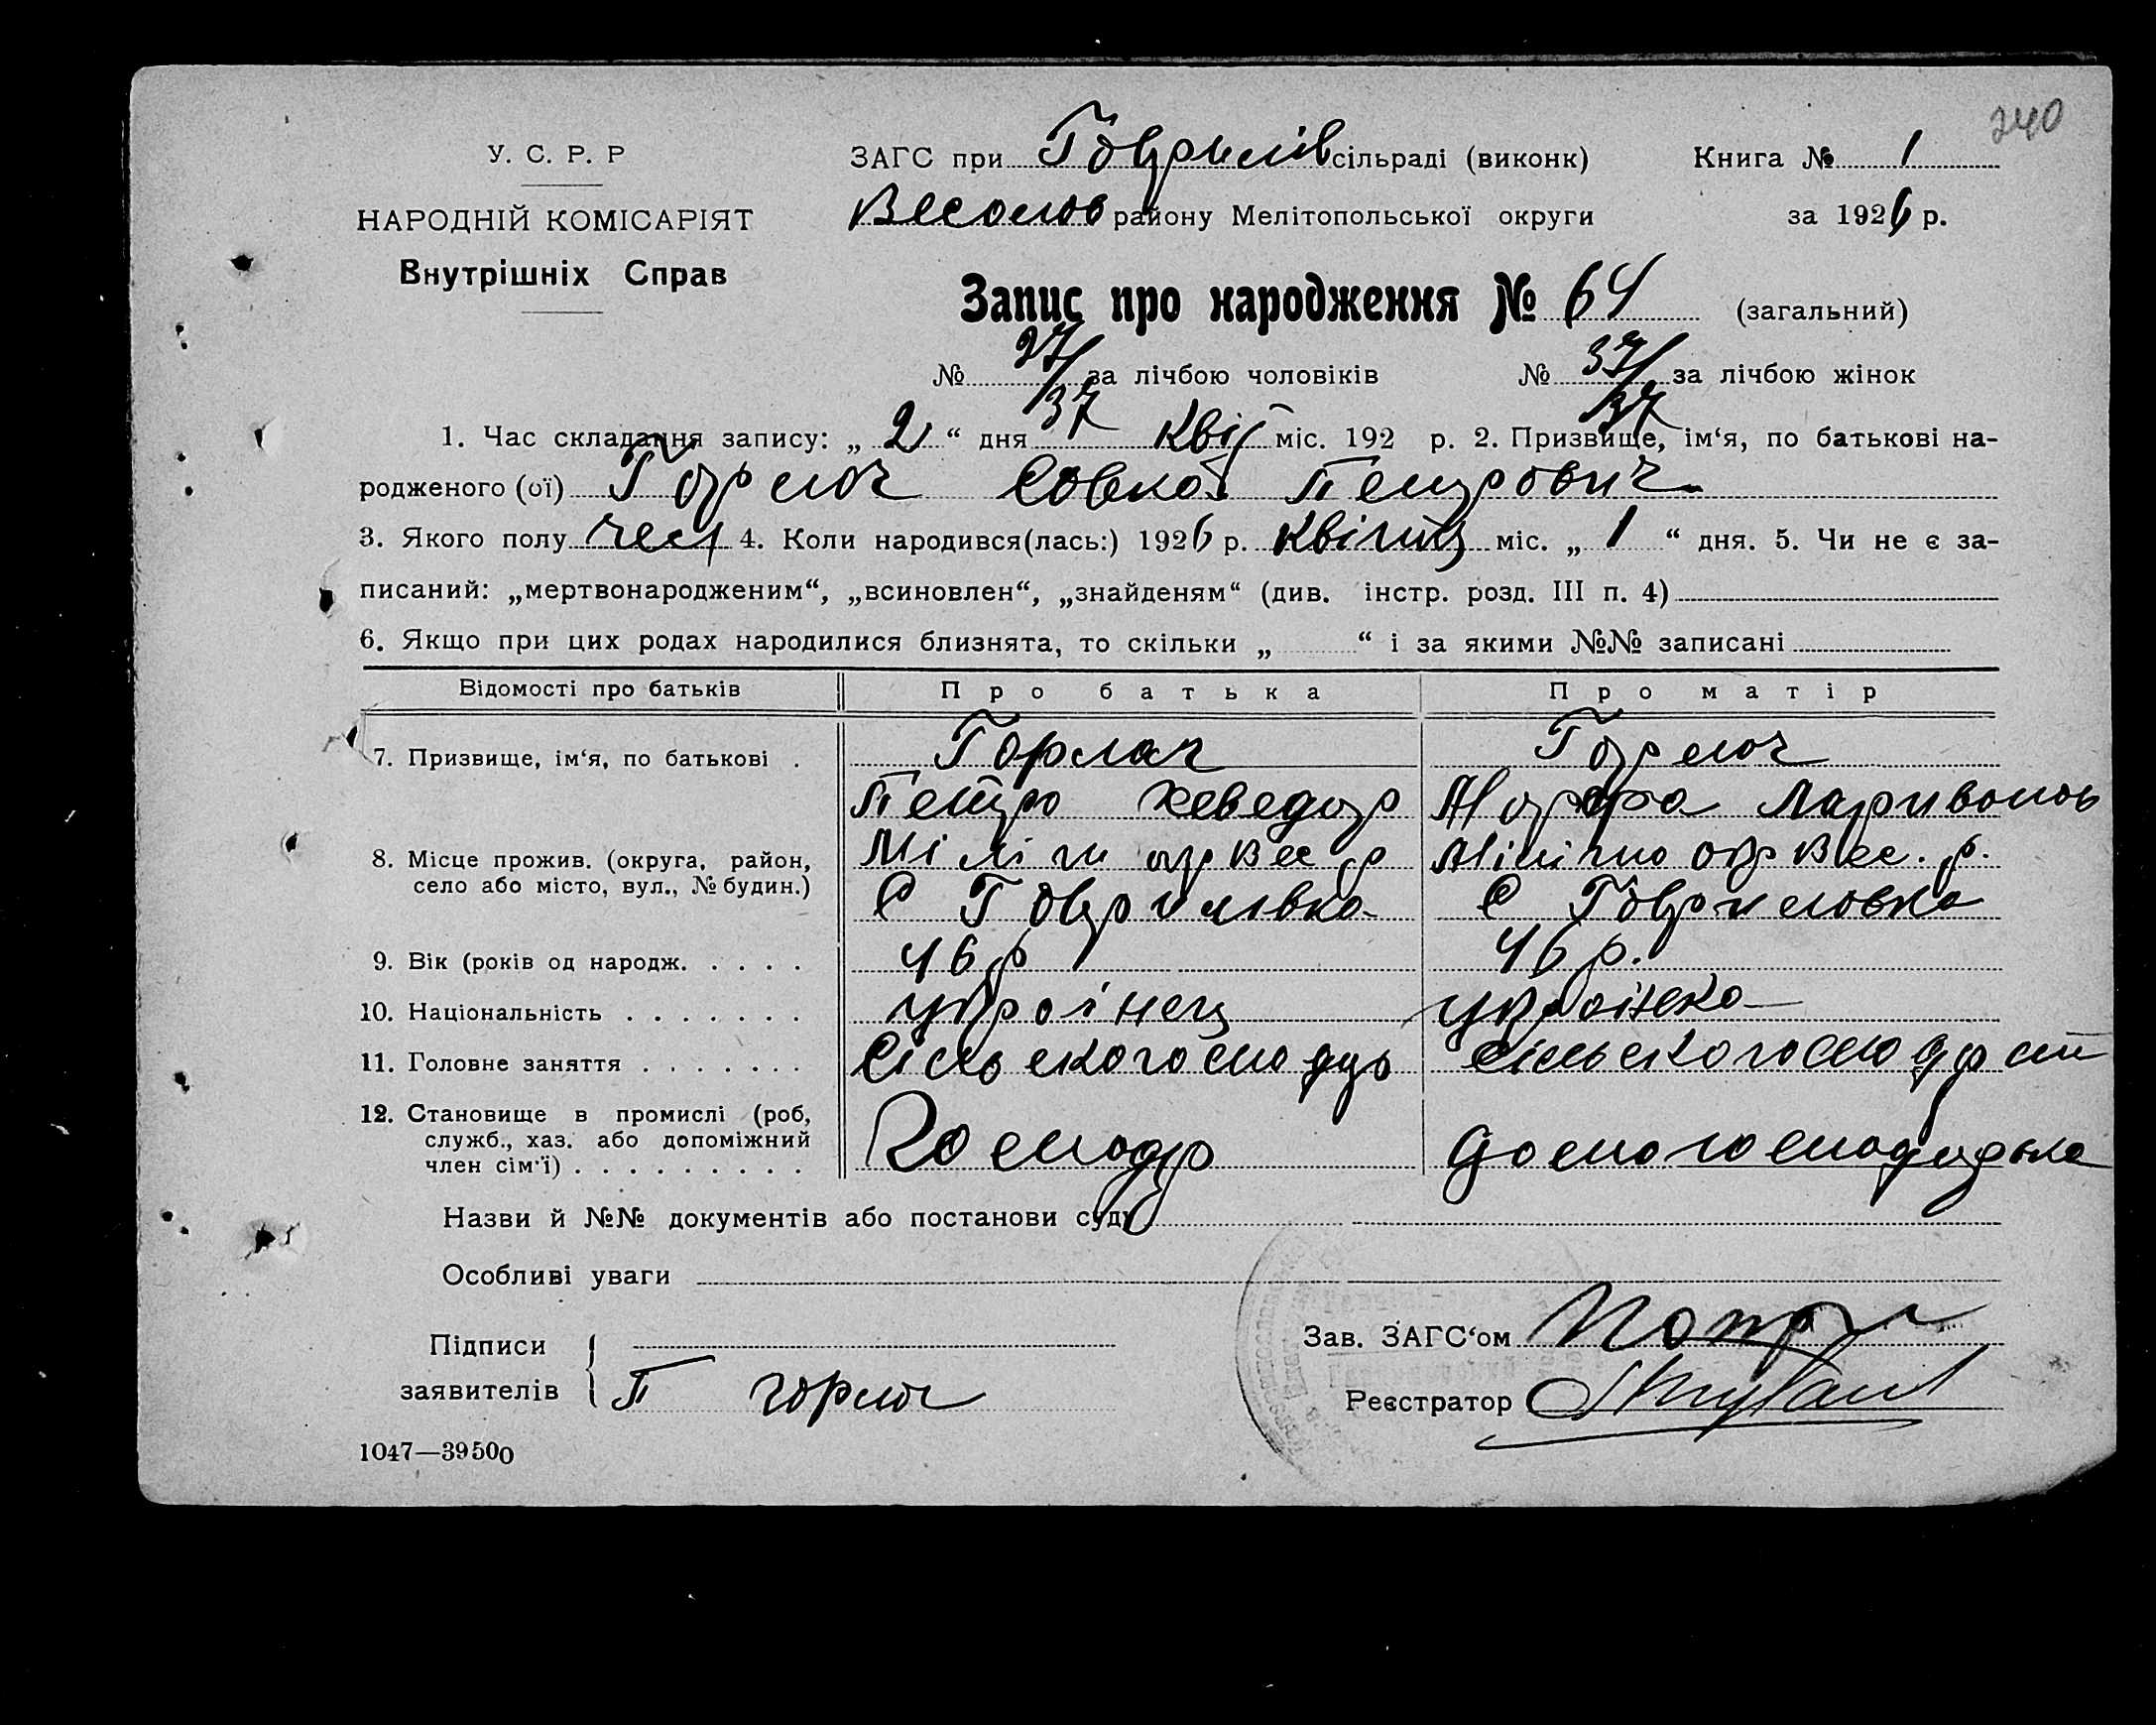 240
У. С. Р. Р
НАРОДНІЙ КОМІСАРІЯТ
Внутрішніх Справ
ЗАГС при Гаврилів сільраді (виконк) Книга № 1
Веселов району Мелітопольської округи за 1926 р.
Запис про народження № 64 (загальний)
№ 27/37 за лічбою чоловіків № 37/37 за лічбою жінок
1. Час складання запису: „ 2 “ дня Квіт міс. 192 р. 2. Призвище, ім‘я, по батькові на-
родженого (ої) Горлач Савка Петрович
3. Якого полу чол 4. Коли народився(лась:) 1926 р. Квітня міс. „ 1 “ дня. 5. Чи не є за-
писаний: „мертвонародженим“, „всиновлен“, „знайденям“ (див. інстр. розд. III п. 4)
6. Якщо при цих родах народилися близнята, то скільки „ “ і за якими №№ записані
Відомості про батьків Про батька Про матір
7. Призвище, ім‘я, по батькові . Горлач Горлач
Петро Хеведор Ларивонов
8. Місце прожив. (округа, район, Міліт окр Вес р Міліт окр Вес. р.
село або місто, вул., № будин.) С Гаврилівка С Гавриловка
9. Вік (років од народж. . . . . 46 р 46 р.
10. Національність . . . . . . . українец українка
11. Головне заняття . . . . . . . Сільськогоспо
12. Становище в промислі (роб,
служб., хаз. або допоміжний Господр
член сім‘ї) . . . . . . . . . .
Назви й №№ документів або постанови суду
Особливі уваги
Підписи Зав. ЗАГС‘ом
заявителів П горлач Реєстратор
1047—39500